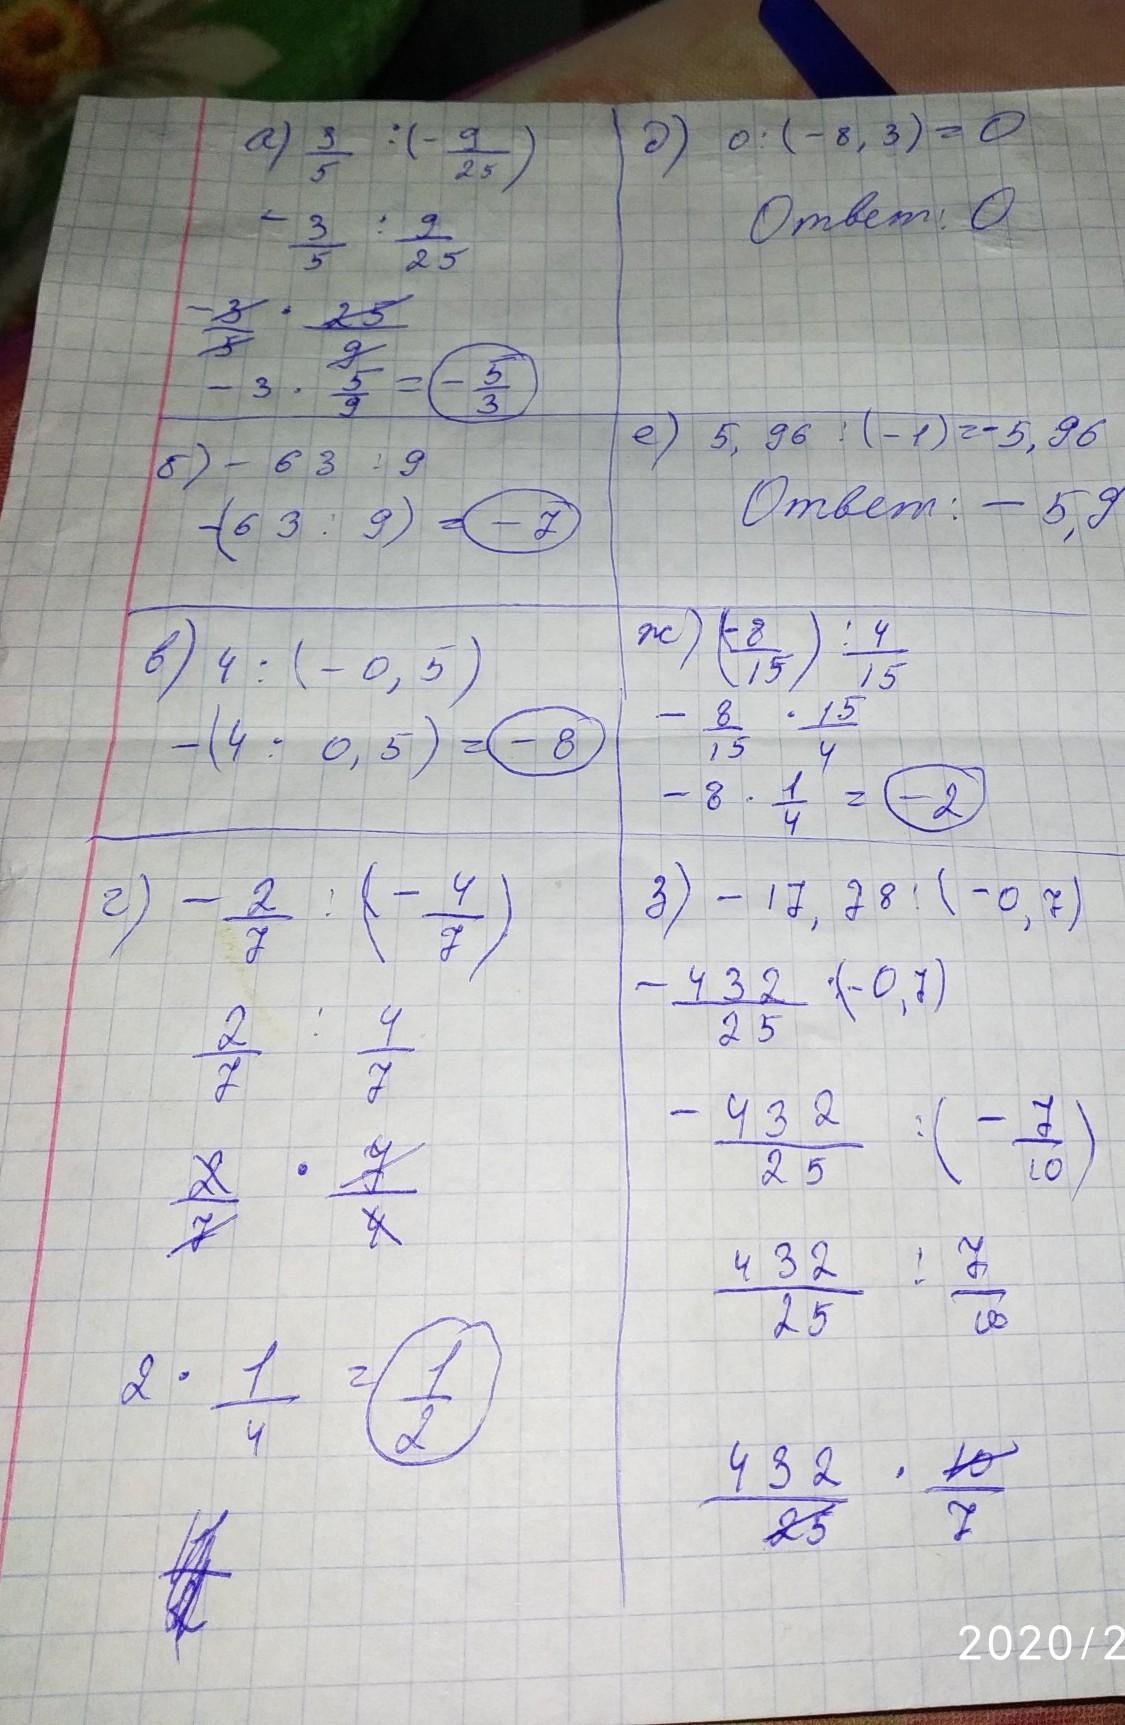 а) 3/5 : (- 9/25)
- 3/5 : 9/25
- 3/5 · 25/9
- 3 · 5/9 = - 5/3
б) - 63 : 9
-(63 : 9) = - 7
в) 4 : (- 0,5)
-(4 : 0,5) = - 8
г) - 2/7 : (- 4/7)
2/7 : 4/7
2/7 · 7/4
2 · 1/4 = 1/2
д) 0 : (-8,3) = 0
Ответ: 0
е) 5,96 : (-1) = -5,96
Ответ: - 5,9
ж) (-8/15) : 4/15
- 8/15 · 15/4
- 8 · 1/4 = - 2
з) - 17,28 : (-0,7)
- 432/25 : (-0,7)
- 432/25 : (- 7/10)
432/25 : 7/10
432/25 · 10/7
2020/2